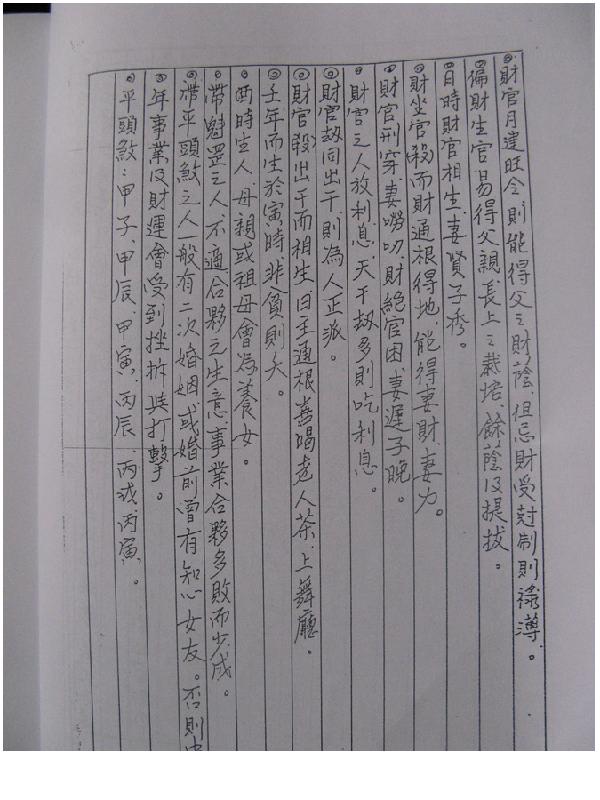 ◎財官月建旺令則能得父之財蔭、但忌財受尅制則祿薄。
◎偏財生官易得父親、長上之栽培、餘蔭及提拔。
◎日時財官相生妻賢子秀。
◎財坐官殺而財通根得地、能得妻財、妻力。
◎財官刑穿妻嘮叨、財絕官困、妻遲子晚。
◎財官之人放利息、天干劫多則吃利息。
◎財官故同出干、則為人正派。
◎財官殺出干而相生、日主通根喜喝老人茶、上舞廳。
◎壬年而生於寅時、非貧則夭。
◎酉時生人、母親或祖母會為養女。
◎帶魁罡之人、不適合夥之生意、事業合夥多敗而少成。
◎帶平頭煞之人一般有二次婚姻、或婚前曾有知心女友。否則中
◎年事業及財運會受到挫折與打擊。
◎平頭煞：甲子、甲辰、甲寅、丙辰、丙戌、丙寅。